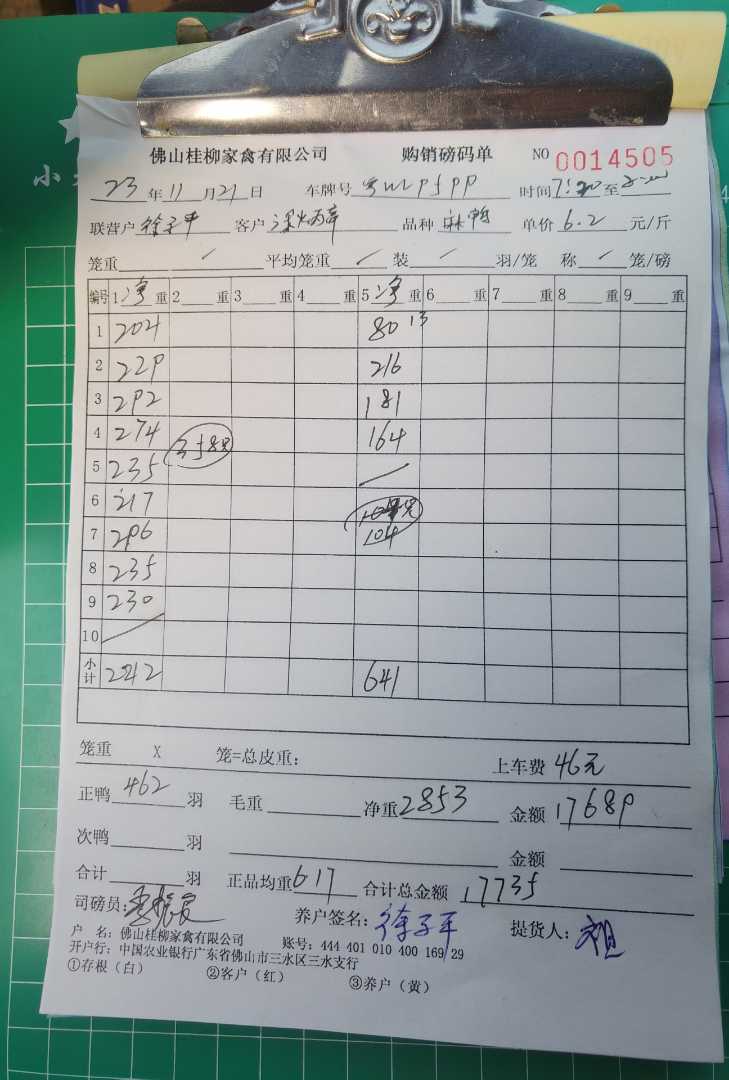 小
佛山桂柳家禽有限公司 购销磅码单 NO 0014505
23年11月21日 车牌号 时间7:20至
联营户 徐子平 客户 品种 麻鸭 单价6.2元/斤
笼重 / 平均笼重 / 装 / 羽/笼 称 / 笼/磅
编号 1净重 2 重 3 重 4 重 5净重 6 重 7 重 8 重 9 重
1 204 80 13
2 229 216
3 292 181
4 274 358只 164
5 235 /
6 217 104只
7 296 104
8 235
9 230
10 /
小计 2212 641
笼重 X 笼=总皮重: 上车费 46元
正鸭 462 羽 毛重 净重2853 金额 17689
次鸭 羽 金额
合计 羽 正品均重617 合计总金额 17735
司磅员: 养户签名: 徐子平 提货人: 祖
户 名: 佛山桂柳家禽有限公司 账号: 444 401 010 400 169 29
开户行: 中国农业银行广东省佛山市三水区三水支行
①存根(白) ②客户(红) ③养户(黄)